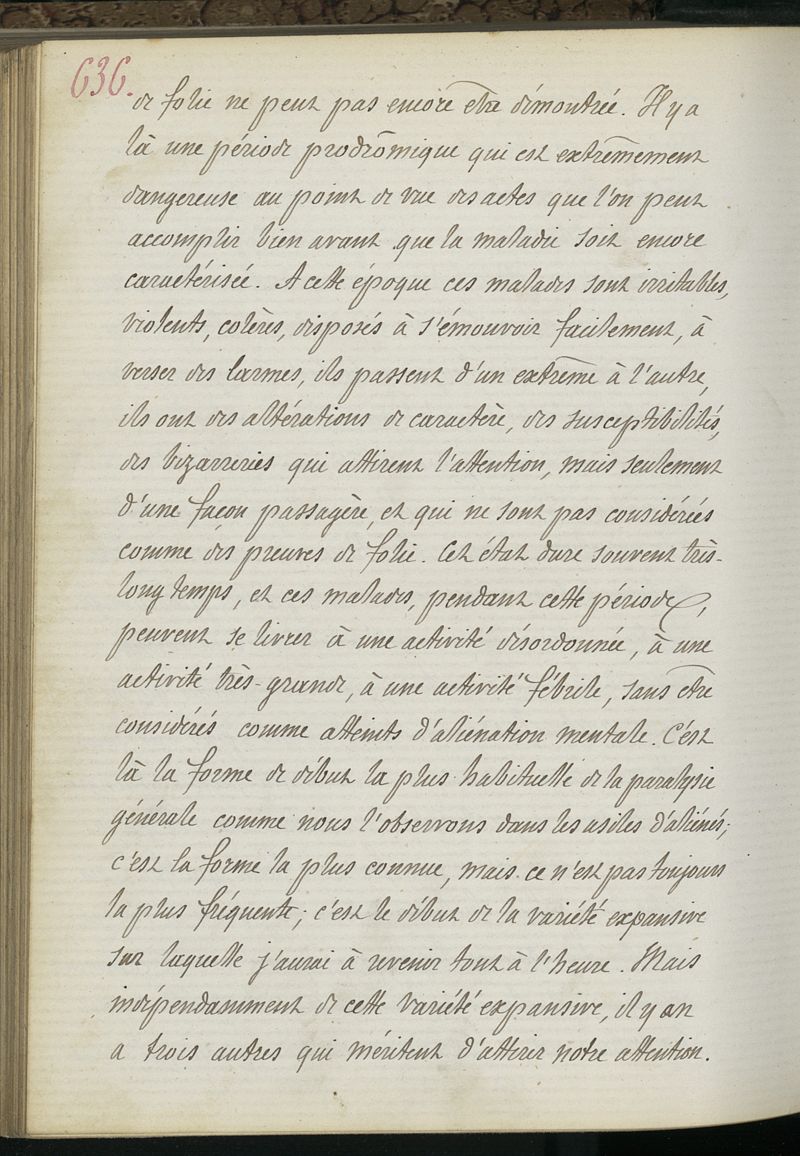 636.
de folie ne peut pas encore être démontrée. Il y a
là une période prodrômique qui est extrêmement
dangereuse au point de vue des actes que l'on peut
accomplir bien avant que la maladie soit encore
caractérisée. A cette époque ces malades sont irritables,
violents, colères, disposés à s'émouvoir facilement, à
verser des larmes, ils passent d'un extrême à l'autre,
ils ont des altérations de caractère, des susceptibilités,
des bizarreries qui attirent l'attention, mais seulement
d'une façon passagère, et qui ne sont pas considérées
comme des preuves de folie. Cet état dure souvent très-
long temps, et ces malades, pendant cette période,
peuvent se livrer à une activité désordonnée, à une
activité très-grande, à une activité fébrile, sans être
considérés comme atteints d'aliénation mentale. C'est
là la forme de début la plus habituelle de la paralysie
générale comme nous l'observons dans les asiles d'aliénés;
c'est la forme la plus connue, mais ce n'est pas toujours
la plus fréquente; c'est le début de la variété expansive
sur laquelle j'aurai à revenir tout à l'heure. Mais
indépendamment de cette variété expansive, il y en
a trois autres qui méritent d'attirer notre attention.